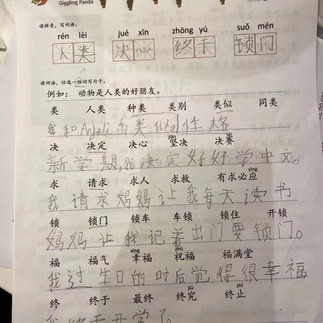 Giggling Panda
读拼音，写词语。
rén lèi jué xīn zhōng yú suǒ mén
人类 决心 终于 锁门
读词语，任选一组词写句子。
例如：动物是人类的好朋友。
类 人类 种类 类别 类似 同类
我和Anjali的类似的性格
决 决定 决心 坚决 决赛
新学期，我决定好好学中文。
求 请求 求人 求救 有求必应
我请求妈妈让我每天读书
锁 锁门 锁车 车锁 锁住 开锁
妈妈让我记着出门要锁门。
福 福气 幸福 祝福 福满堂
我过生日的时后觉得很幸福
终 终于 最终 终究 终止
我终于开学了。